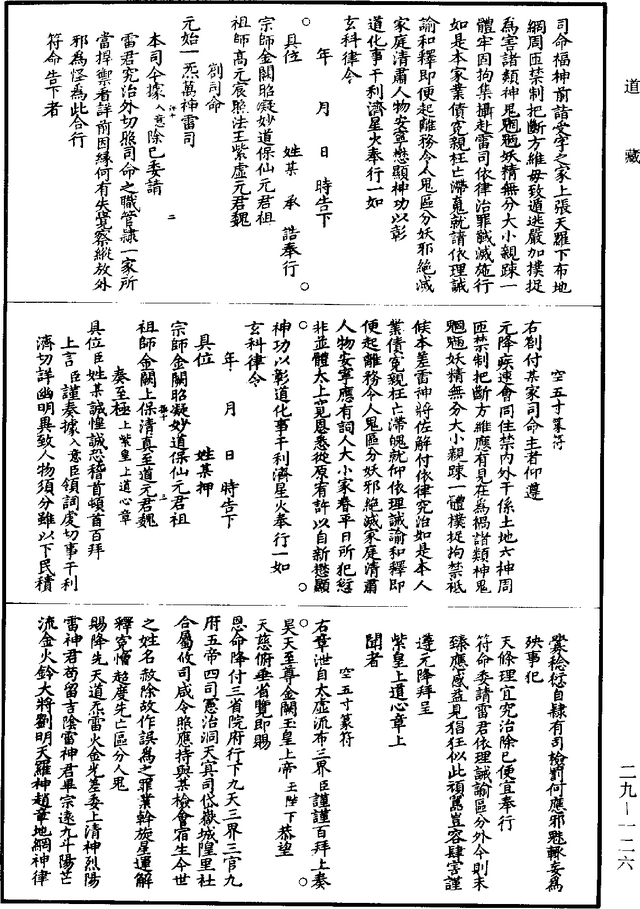 道藏
司命福神前詣受字之家上張天羅下布地
網周匝禁制把斷方維毋致遁逃嚴加撲捉
為害諸類神鬼魍魎妖精無分大小親踈一
體牢固拘集攝赴雷司依律治罪馘滅施行
如是本家業債冤親枉亡滯魂就請依理誡
諭和釋即便起離務令人鬼區分妖邪絕滅
家庭清肅人物安寧懋顯神功以彰
道化事干利濟星火奉行一如
玄科律令
年 月 日 時告下
具位 姓某 承 誥奉行
宗師金闕昭凝妙道保仙元君祖
祖師高元宸照法王紫虛元君魏
劄司命
元始一炁萬神雷司
本司今據入意除已委請
雷君究治外切照司命之職管隸一家所
當捍禦看詳前因緣何有失覺察縱放外
邪為怪為此合行
符命告下者
空五寸篆符
右劄付某家司命主者仰遵
元降疾速會同住禁內外干係土地六神周
匝禁制把斷方維應有見在為禍諸類神鬼
魍魎妖精無分大小親踈一體撲捉拘禁祗
候本差雷神將佐解付依律究治如是本人
業債冤親枉亡滯魄就仰依理誡諭和釋即
便起離務令人鬼區分妖邪絕滅家庭清肅
人物安寧應有詞人大小家眷平日所犯愆
非並體太上寬恩悉從原宥許以自新懋顯
神功以彰道化事干利濟星火奉行一如
玄科律令
年 月 日 時告下
具位 姓某押
宗師金闕昭凝妙道保仙元君祖
祖師金闕上保清真至道元君魏
奏至極上紫皇上道心章
具位臣姓某誠惶誠恐稽首頓首百拜
上言臣謹奏據入意臣領詞虔切事干利
濟切詳幽明異致人物須分雖以下民積
釁稔愆自隸有司檢劾何應邪魅輒妄為
殃事犯
天條理宜究治除已便宜奉行
符命委請雷君依理誡諭區分外今則未
臻應感益見猖狂似此頑駡豈容肆害謹
遵元降拜呈
紫皇上道心章上
聞者
空五寸篆符
右章泄自太虛流布三界臣謹謹百拜上奏
昊天至尊金闕玉皇上帝玉陛下恭望
天慈俯垂省覽即賜
恩命降付三省院府行下九天三界三官九
府五帝四司憲治洞天真司岱嶽城隍里社
合屬攸司咸令照應持與某檢會宿生今世
之姓名赦除故作誤為之罪業斡旋星運解
釋冤憎超度先亡區分人鬼
賜降先天道炁雷火金光差委上清神烈陽
雷神君苟留吉陰雷神君畢宗遠九斗陽芒
流金火鈴大將劉明天羅神趙韋地網神律
二九—一二六